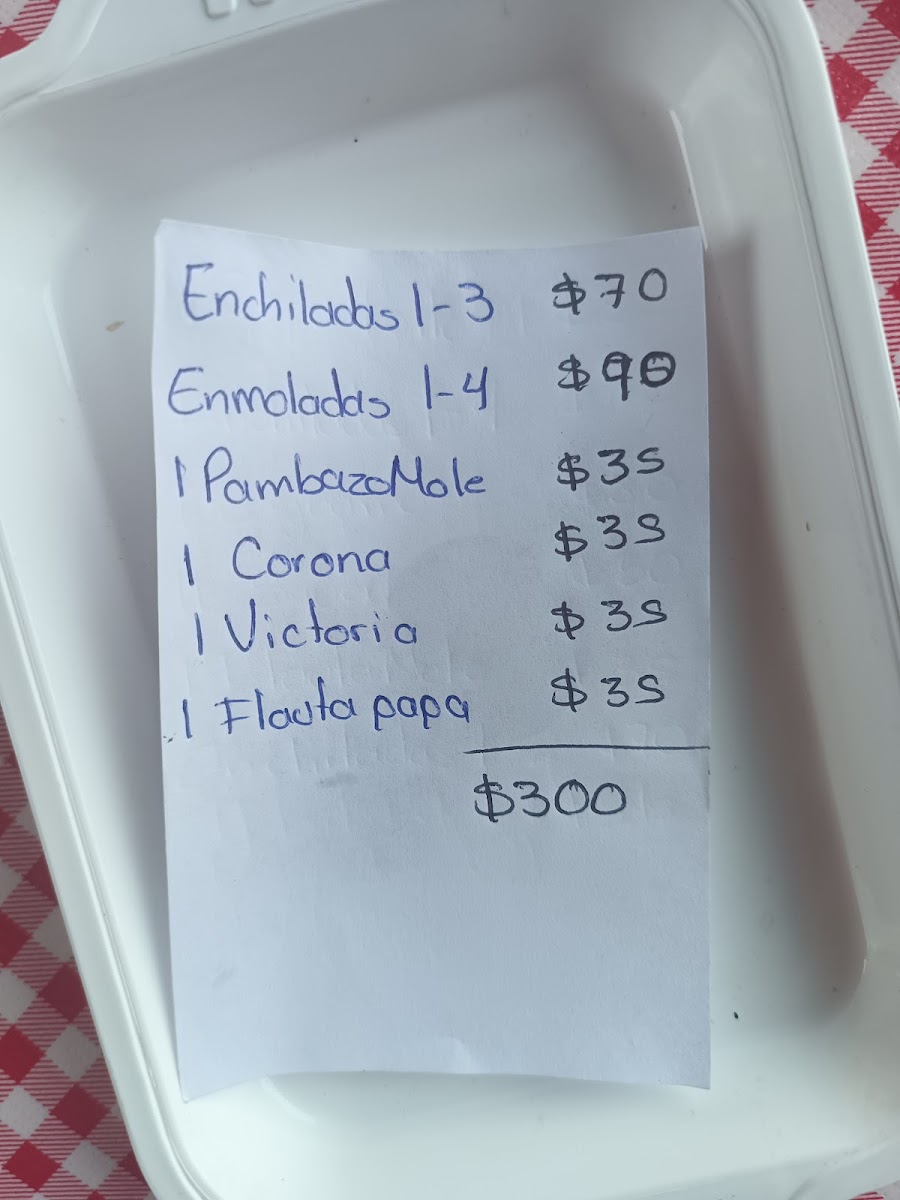 Enchiladas 1-3 $70
Enmoladas 1-4 $90
1 Pambazo Mole $35
1 Corona $35
1 Victoria $35
1 Flauta papa $35
$300